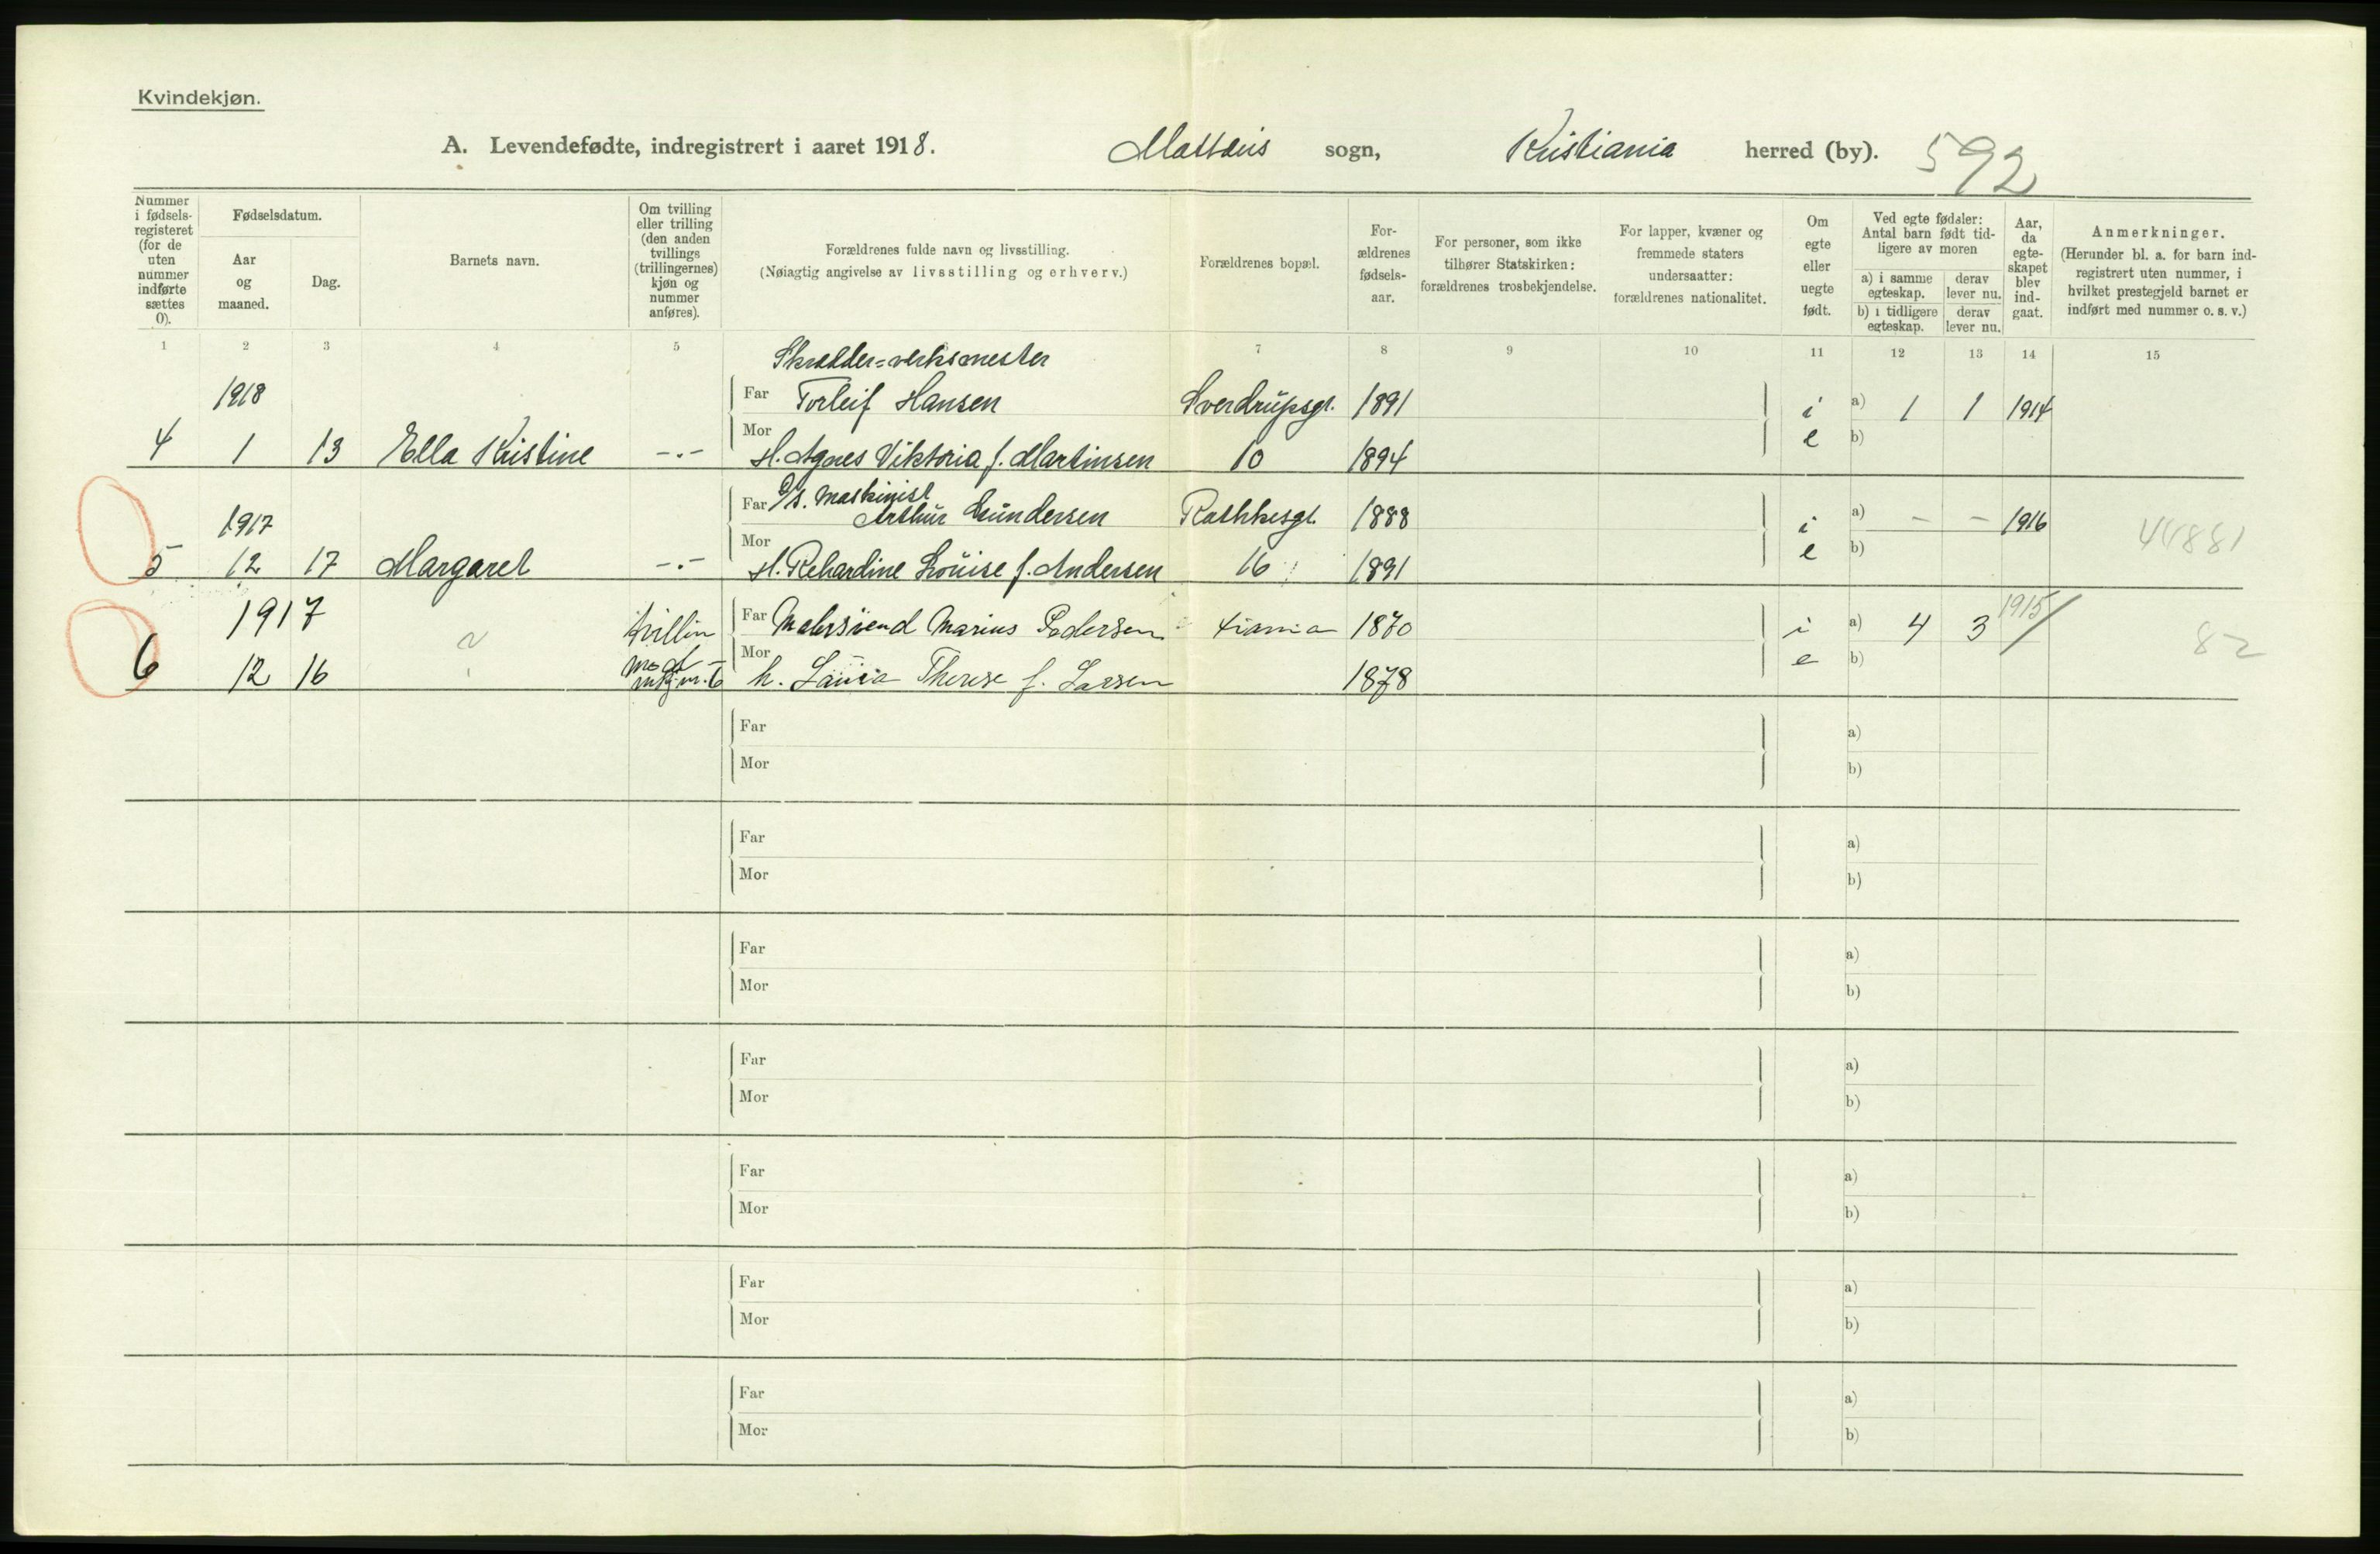 Kvindekjøn.
A. Levendefødte, indregistrert i aaret 1918. Mattæus sogn, Kristiania herred (by). 592
Nummer i fødsels-registeret (for de uten nummer indførte sættes 0).
Fødselsdatum.
Aar og maaned.
Dag.
Barnets navn.
Om tvilling eller trilling (den anden tvillings (trillingernes) kjøn og nummer anføres).
Forældrenes fulde navn og livsstilling.
(Nøiagtig angivelse av livsstilling og erhverv.)
Forældrenes bopæl.
For-ældrenes fødsels-aar.
For personer, som ikke tilhører Statskirken: forældrenes trosbekjendelse.
For lapper, kvæner og fremmede staters undersaatter: forældrenes nationalitet.
Om egte eller uegte født.
Ved egte fødsler: Antal barn født tid-ligere av moren
a) i samme egteskap. derav lever nu.
b) i tidligere egteskap. derav lever nu.
Aar, da egte-skapet blev ind-gaat.
Anmerkninger.
(Herunder bl. a. for barn ind-registrert uten nummer, i hvilket prestegjeld barnet er indført med nummer o. s. v.)
1 2 3 4 5 7 8 9 10 11 12 13 14 15
Skrædder=verksmester
1918 Far Torleif Hansen Sverdrupsgt. 1891 i a) 1 1 1914
4 1 13 Ella Kristine -.- Mor H. Agnes Viktoria f. Martinsen 10 1894 e b)
Far D/s. Maskinist
1917 Arthur Gundersen Rathkesgt. 1888 i a) - - 1916 44881
5 12 17 Margaret -.- Mor H. Rehardine Louise f. Andersen 16 1891 e b)
1917 tvilling Far Marius Pedersen Xiania 1870 i a) 4 3 1915/ 82
6 12 16 Mor h. Laura Therese f. Larsen 1878 e b)
Far a)
Mor b)
Far a)
Mor b)
Far a)
Mor b)
Far a)
Mor b)
Far a)
Mor b)
Far a)
Mor b)
Far a)
Mor b)